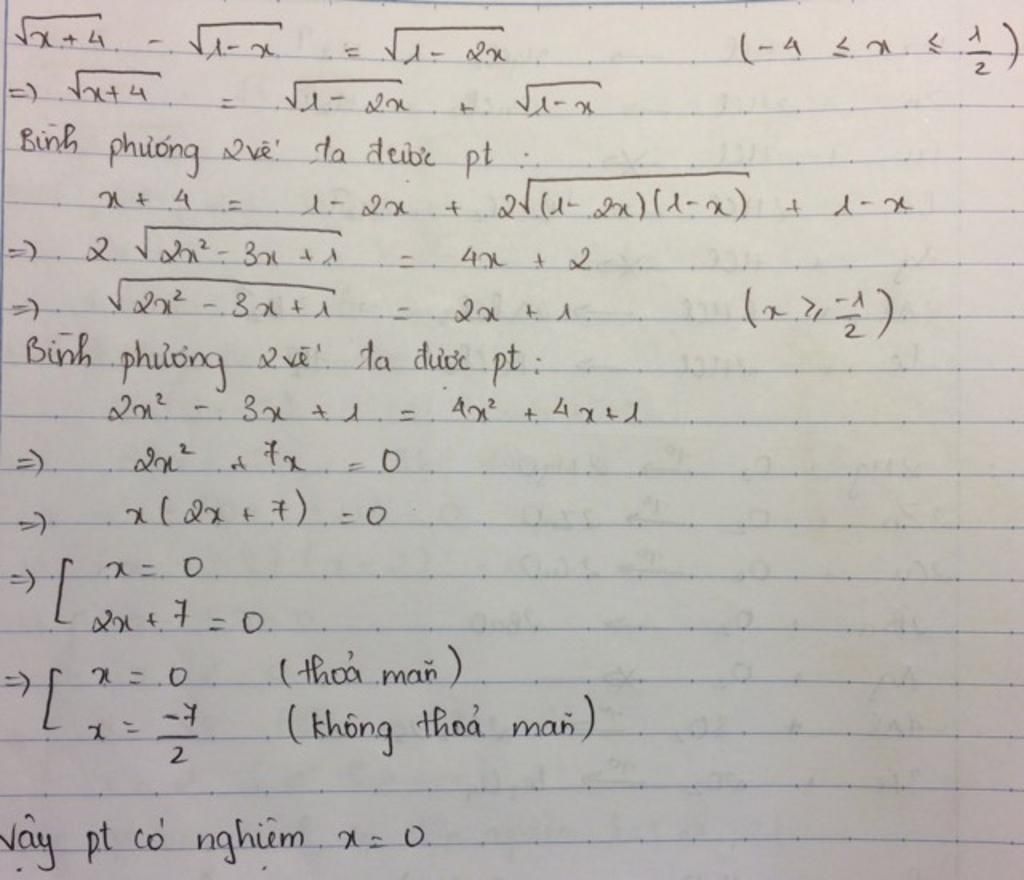 √(x+4) - √(1-x) = √(1-2x) (-4 ≤ x ≤ 1/2)
=> √(x+4) = √(1-2x) + √(1-x)
Bình phương 2 vế ta được pt :
x + 4 = 1 - 2x + 2√((1-2x)(1-x)) + 1-x
=> 2. √(2x² - 3x + 1) = 4x + 2
=> √(2x² - 3x + 1) = 2x + 1 (x ≥ -1/2)
Bình phương 2 vế ta được pt :
2x² - 3x + 1 = 4x² + 4x + 1
=> 2x² + 7x = 0
=> x(2x + 7) = 0
=> [ x = 0
2x + 7 = 0
=> [ x = 0 (thoả mãn)
x = -7/2 (không thoả mãn)
Vậy pt có nghiệm x = 0